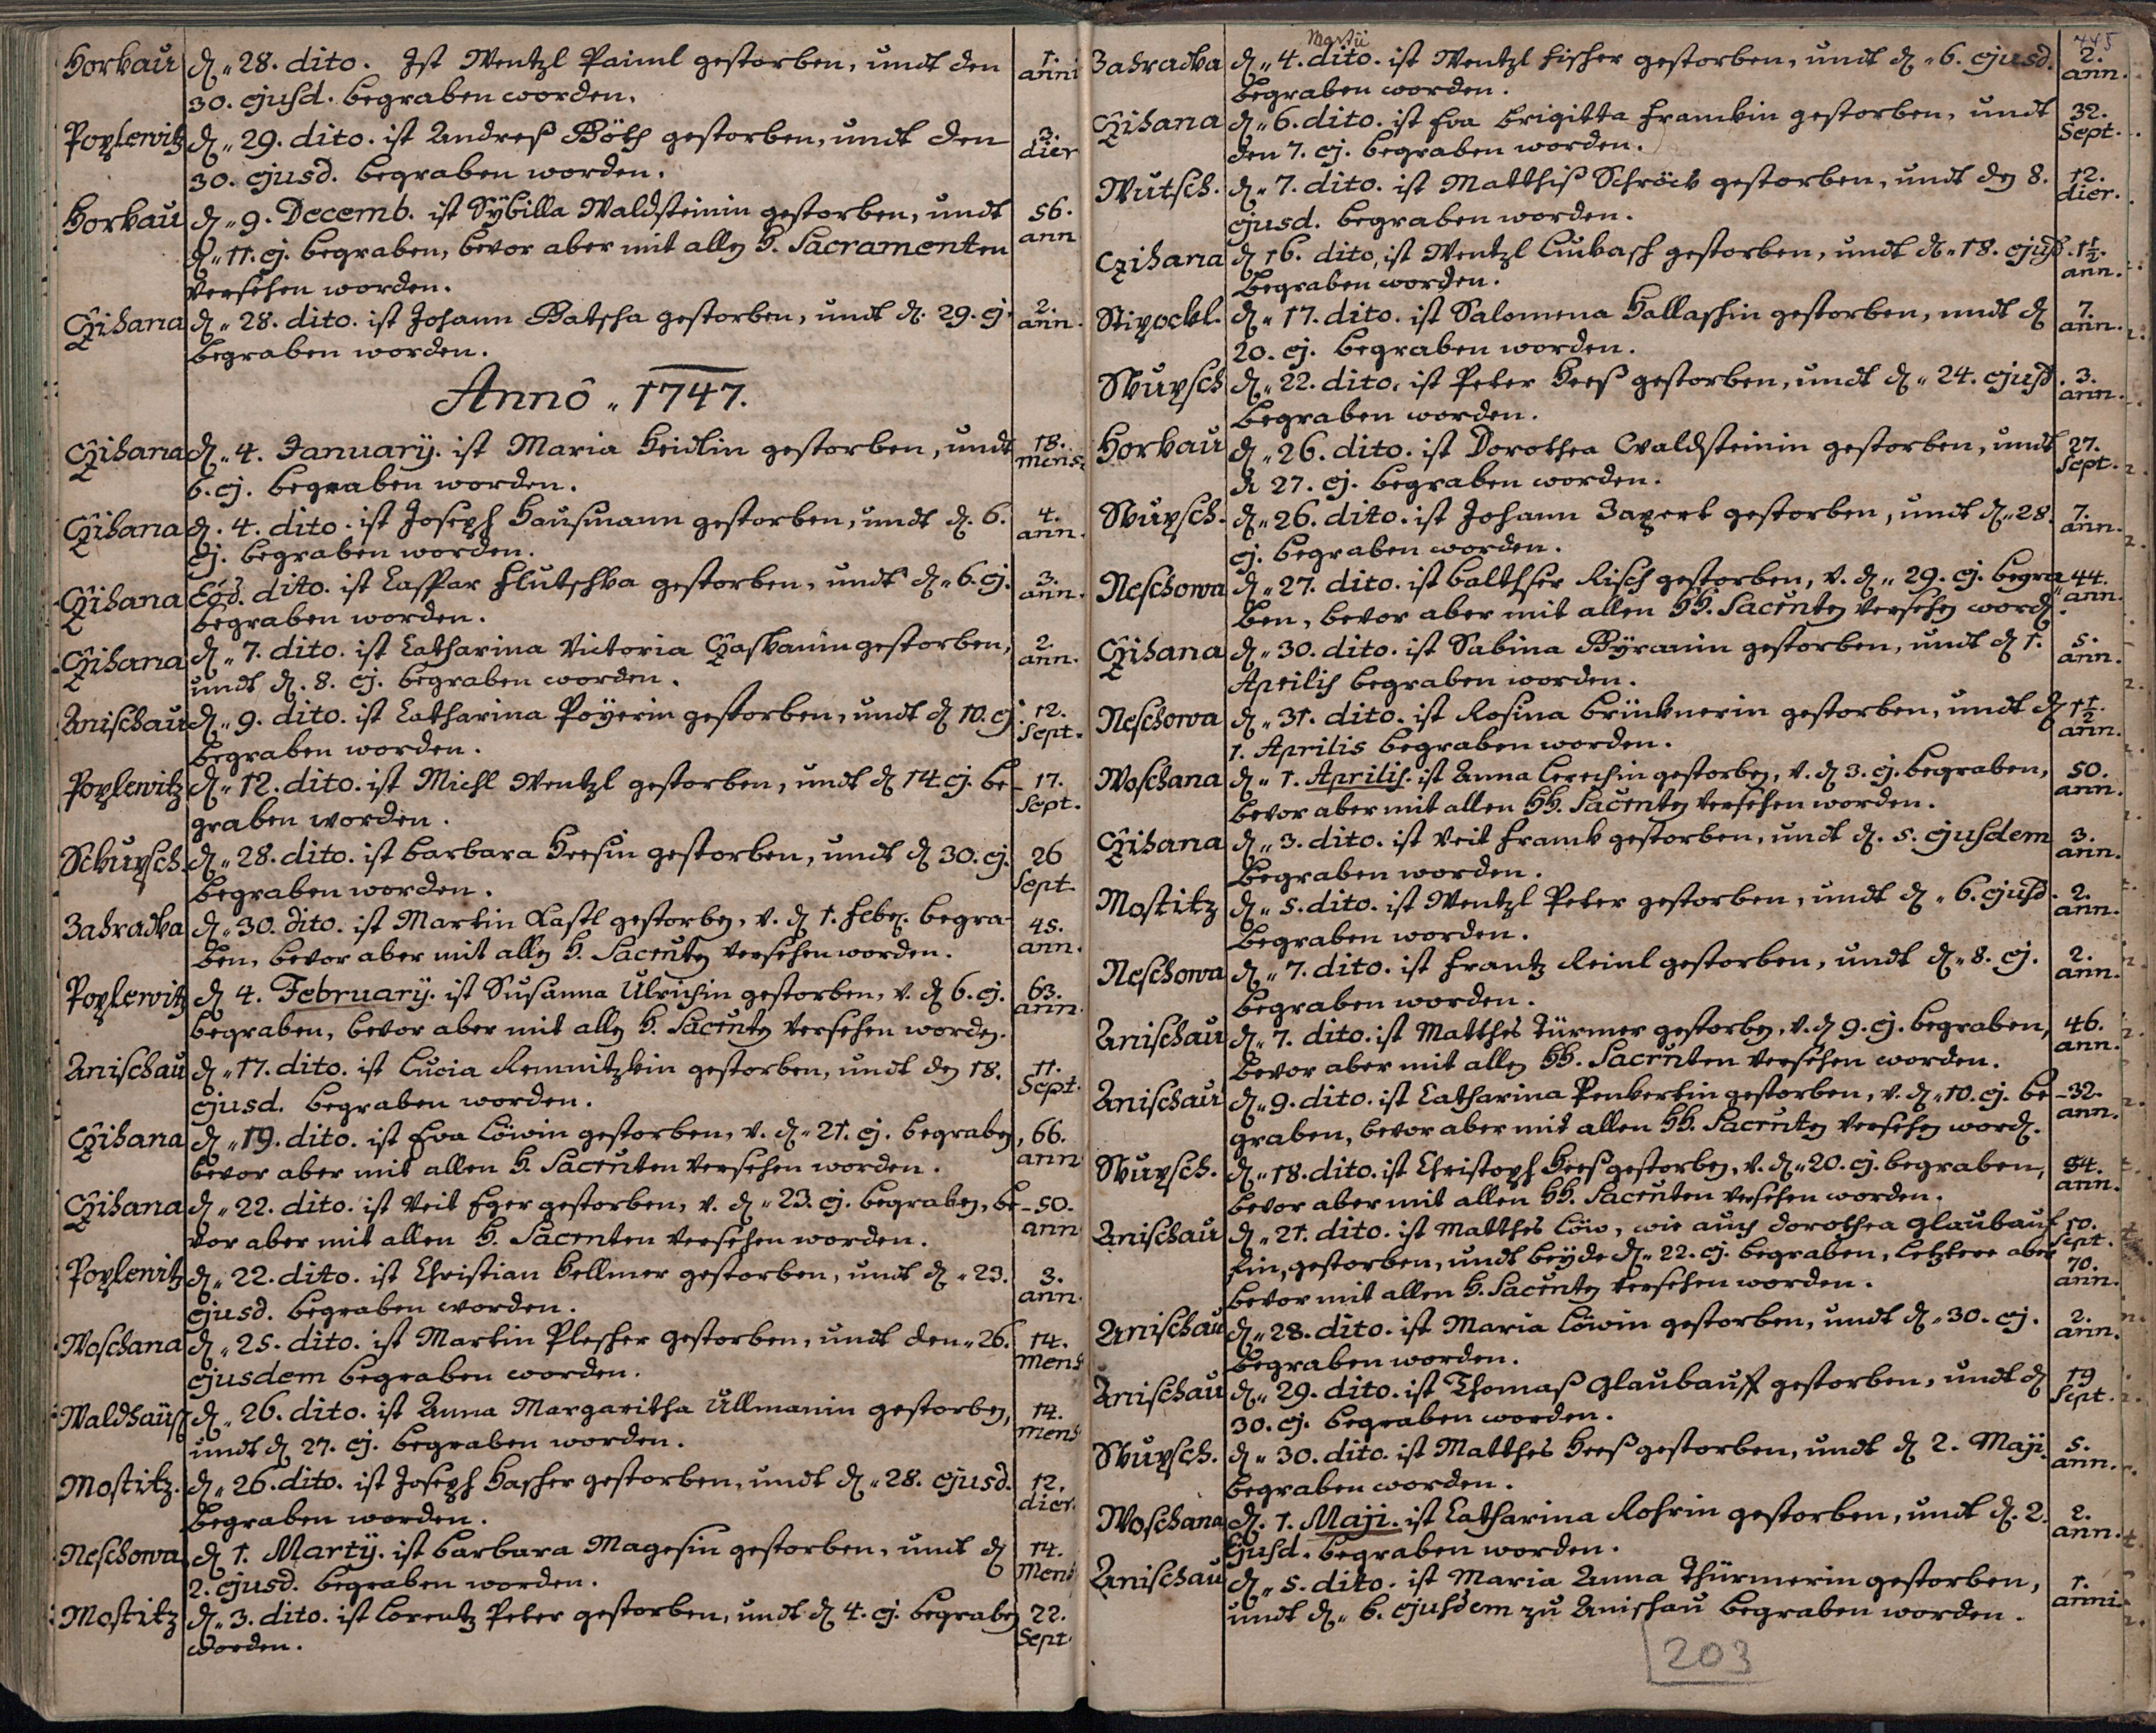 Horkau d. 28. dito. Ist Wentzl Paiml gestorben, undt den 1.
30. ejusd. begraben worden. anni
Poplewitz d. 29. dito. ist Andreß Böth gestorben, undt den 3.
30. ejusd. begraben worden. dier
Horkau d. 9. Decemb. ist Sybilla Waldsteinin gestorben, undt 56.
d. 11. ej. begraben, bevor aber mit allen H. Sacramenten ann
versehen worden.
Czihana d. 28. dito. ist Johann Batscha gestorben, undt d. 29. ej. 2.
begraben worden. ann.
Annô. 1747.
Czihana d. 4. January. ist Maria Heidlin gestorben, undt 18.
6. ej. begraben worden. mens.
Czihana d. 4. dito. ist Joseph Hausmann gestorben, undt d. 6. 4.
ej. begraben worden. ann.
Czihana Eod. dito. ist Caspar Flutschka gestorben, undt d. 6. ej. 3.
begraben worden. ann.
Czihana d. 7. dito. ist Catharina Victoria Czaskanin gestorben, 2.
undt d. 8. ej. begraben worden. ann.
Anischau d. 9. dito. ist Catharina Poÿerin gestorben, undt d 10. ej. 12.
begraben worden. Sept.
Poplewitz d. 12. dito. ist Michl Wentzl gestorben, undt d 14. ej. be- 17.
graben worden. Sept.
Skupsch. d. 28. dito. ist Barbara Heesin gestorben, undt d 30. ej. 26
begraben worden. Sept.
Zahradka d. 30. dito. ist Martin Rastl gestorben, v. d 1. Febr. begra- 45.
ben, bevor aber mit allen H. Sacrnten versehen worden. ann.
Poplewitz d 4. February. ist Susanna Ulrichin gestorben, v. d 6. ej. 63.
begraben, bevor aber mit allen H. Sacrnten versehen worden. ann.
Anischau d. 17. dito. ist Lucia Remnitzkin gestorben, undt den 18. 11.
ejusd. begraben worden. Sept.
Czihana d. 19. dito. ist Eva Löwin gestorben, v. d. 21. ej. begraben, 66.
bevor aber mit allen H. Sacrnten versehen worden. ann
Czihana d. 22. dito. ist Veit Eger gestorben, v. d. 23. ej. begraben, be- 50.
vor aber mit allen H. Sacrnten versehen worden. ann
Poplewitz d. 22. dito. ist Christian Hellmer gestorben, undt d. 23. 3.
ejusd. begraben worden. ann.
Woschana d. 25. dito. ist Martin Plescher gestorben, undt den 26. 14.
ejusdem begraben worden. mens
Waldhäusl d. 26. dito. ist Anna Margaritha Ullmanin gestorben, 14.
undt d 27. ej. begraben worden. mens
Mostitz. d. 26. dito. ist Joseph Hascher gestorben, undt d. 28. ejusd. 12.
begraben worden. dier.
Neschowa d 1. Marty. ist Barbara Magesin gestorben, undt d 14.
2. ejusd. begraben worden. Mens
Mostitz d. 3. dito. ist Lorentz Peter gestorben, undt d 4. ej. begraben 22.
worden. Sept.
445
Martii
Zahradka d. 4. dito. ist Wentzl Fischer gestorben, undt d. 6. ejusd. 2.
begraben worden. ann.
Czihana d. 6. dito. ist Eva Brigitta Frankin gestorben, undt 32.
den 7. ej. begraben worden. Sept.
Wutsch. d. 7. dito. ist Matthiß Schröck gestorben, undt den 8. 12.
ejusd. begraben worden. dier.
Czihana d 16. dito, ist Wentzl Lukasch gestorben, undt d. 18. ejusd. 1½.
begraben worden. ann.
Stipockl. d. 17. dito. ist Salomena Hallaschin gestorben, undt d 7.
20. ej. begraben worden. ann.
Skupsch d. 22. dito. ist Peter Heeß gestorben, undt d. 24. ejusd. 3.
begraben worden. ann.
Horkau d. 26. dito. ist Dorothea Waldsteinin gestorben, undt 27.
d 27. ej. begraben worden. Sept.
Skupsch. d. 26. dito. ist Johann Zapert gestorben, undt d. 28. 7.
ej. begraben worden. ann.
Neschowa d. 27. dito. ist Balthser Risch gestorben, v. d. 29. ej. begra 44.
ben, bevor aber mit allen HH. Sacrnten versehen word. ann.
Czihana d. 30. dito. ist Sabina Byranin gestorben, undt d 1. 5.
Aprilis begraben worden. ann.
Neschowa d. 31. dito. ist Rosina Brünknerin gestorben, undt d 1½.
1. Aprilis begraben worden. ann.
Woschana d. 1. Aprilis. ist Anna Lerchin gestorben, v. d 3. ej. begraben, 50.
bevor aber mit allen HH. Sacrnten versehen worden. ann.
Czihana d. 3. dito. ist Veit Frank gestorben, undt d. 5. ejusdem 3.
begraben worden. ann.
Mostitz d. 5. dito. ist Wentzl Peter gestorben, undt d. 6. ejusd. 2.
begraben worden. ann.
Neschowa d. 7. dito. ist Frantz Reinl gestorben, undt d. 8. ej. 2.
begraben worden. ann.
Anischau d. 7. dito. ist Matthes Türmer gestorben, v. d 9. ej. begraben, 46.
bevor aber mit allen HH. Sacrnten versehen worden. ann.
Anischau d. 9. dito. ist Catharina Penkertin gestorben, v. d. 10. ej. be- 32.
graben, bevor aber mit allen HH. Sacrnten versehen word. ann.
Skupsch. d. 18. dito. ist Christoph Heeß gestorben, v. d. 20. ej. begraben, 54.
bevor aber mit allen HH. Sacrnten versehen worden. ann.
Anischau d. 21. dito. ist Matthes Löw, wie auch Dorothea Glaubauf 10.
fin, gestorben, undt beyde d. 22. ej. begraben, letztere aber Sept.
bevor mit allen H. Sacrnten versehen worden. 70. ann.
Anischau d. 28. dito. ist Maria Löwin gestorben, undt d. 30. ej. 2.
begraben worden. ann.
Anischau d. 29. dito. ist Thomaß Glaubauff gestorben, undt d 19
30. ej. begraben worden. Sept.
Skupsch. d. 30. dito. ist Matthes Heeß gestorben, undt d 2. Maji 5.
begraben worden. ann.
Woschana d. 1. Maji. ist Catharina Rohrin gestorben, undt d. 2. 2.
ejusd. begraben worden. ann.
Anischau d. 5. dito. ist Maria Anna Thürmerin gestorben, 1.
undt d. 6. ejusdem zu Anischau begraben worden. anni
203